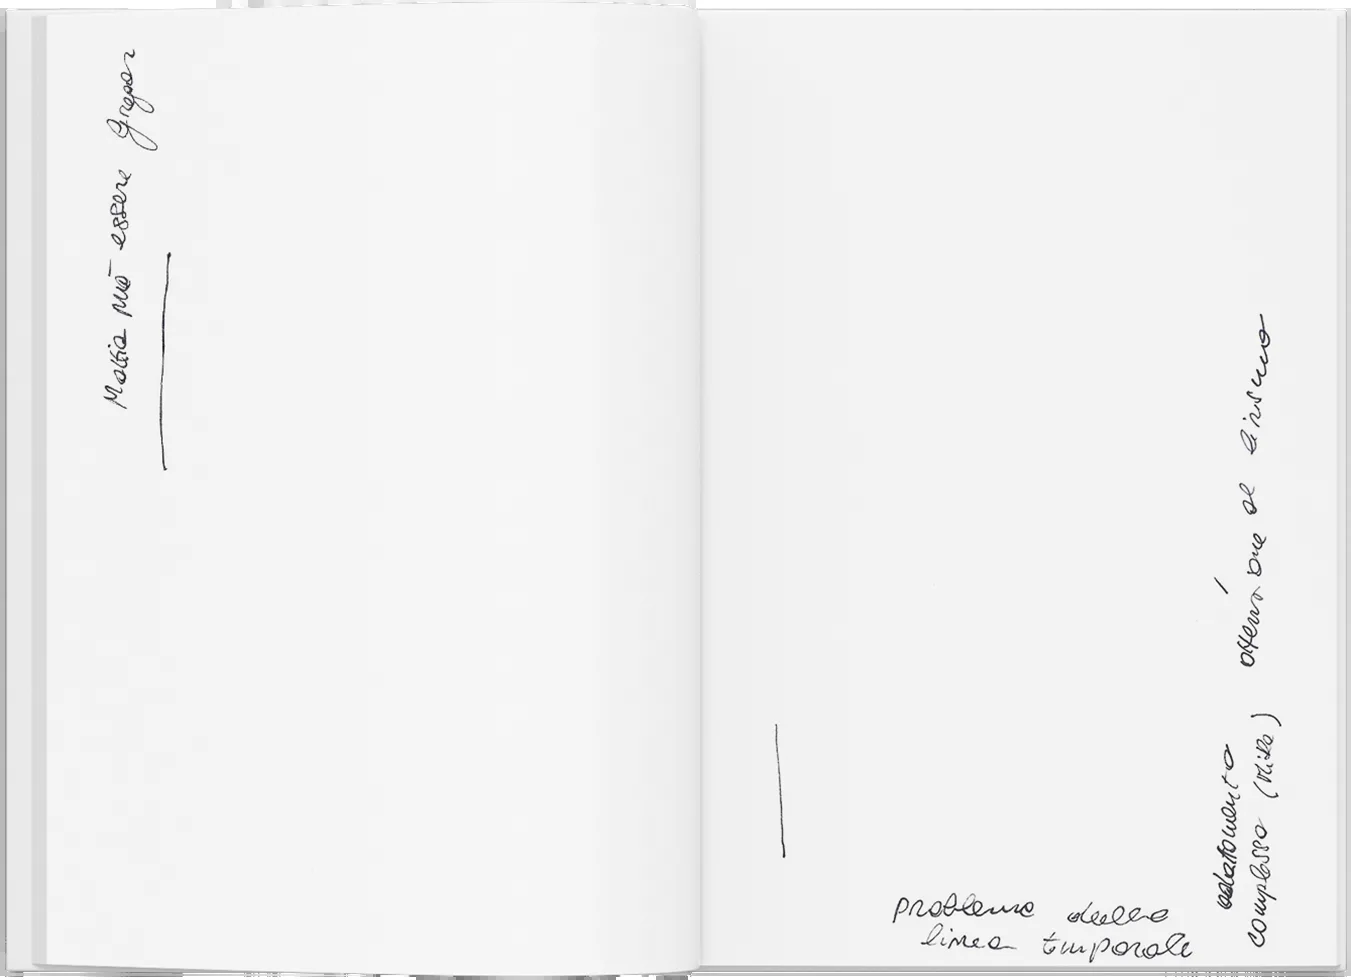 Mattia può essere Gregor
problema della
linea temporale
adattamento
complesso (Mike)
attenzione al lirismo